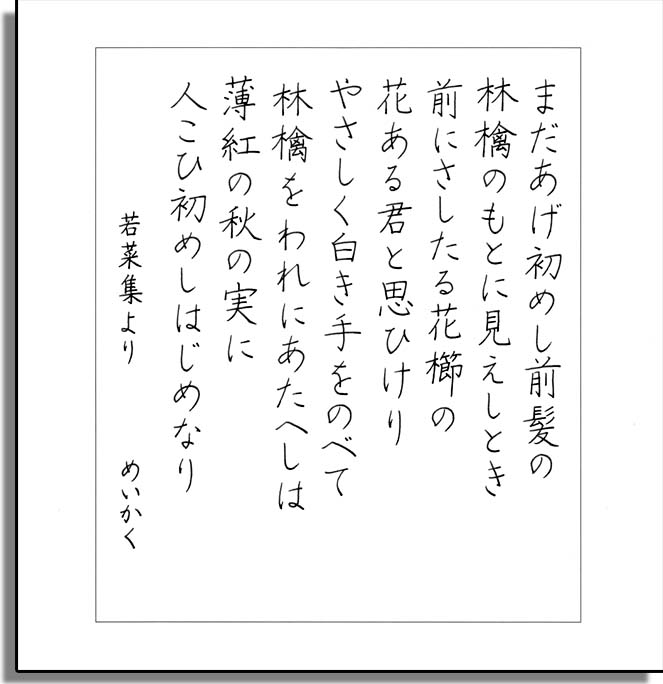 まだあげ初めし前髪の
林檎のもとに見えしとき
前にさしたる花櫛の
花ある君と思ひけり
やさしく白き手をのべて
林檎をわれにあたへしは
薄紅の秋の実に
人こひ初めしはじめなり
若菜集より　めいかく